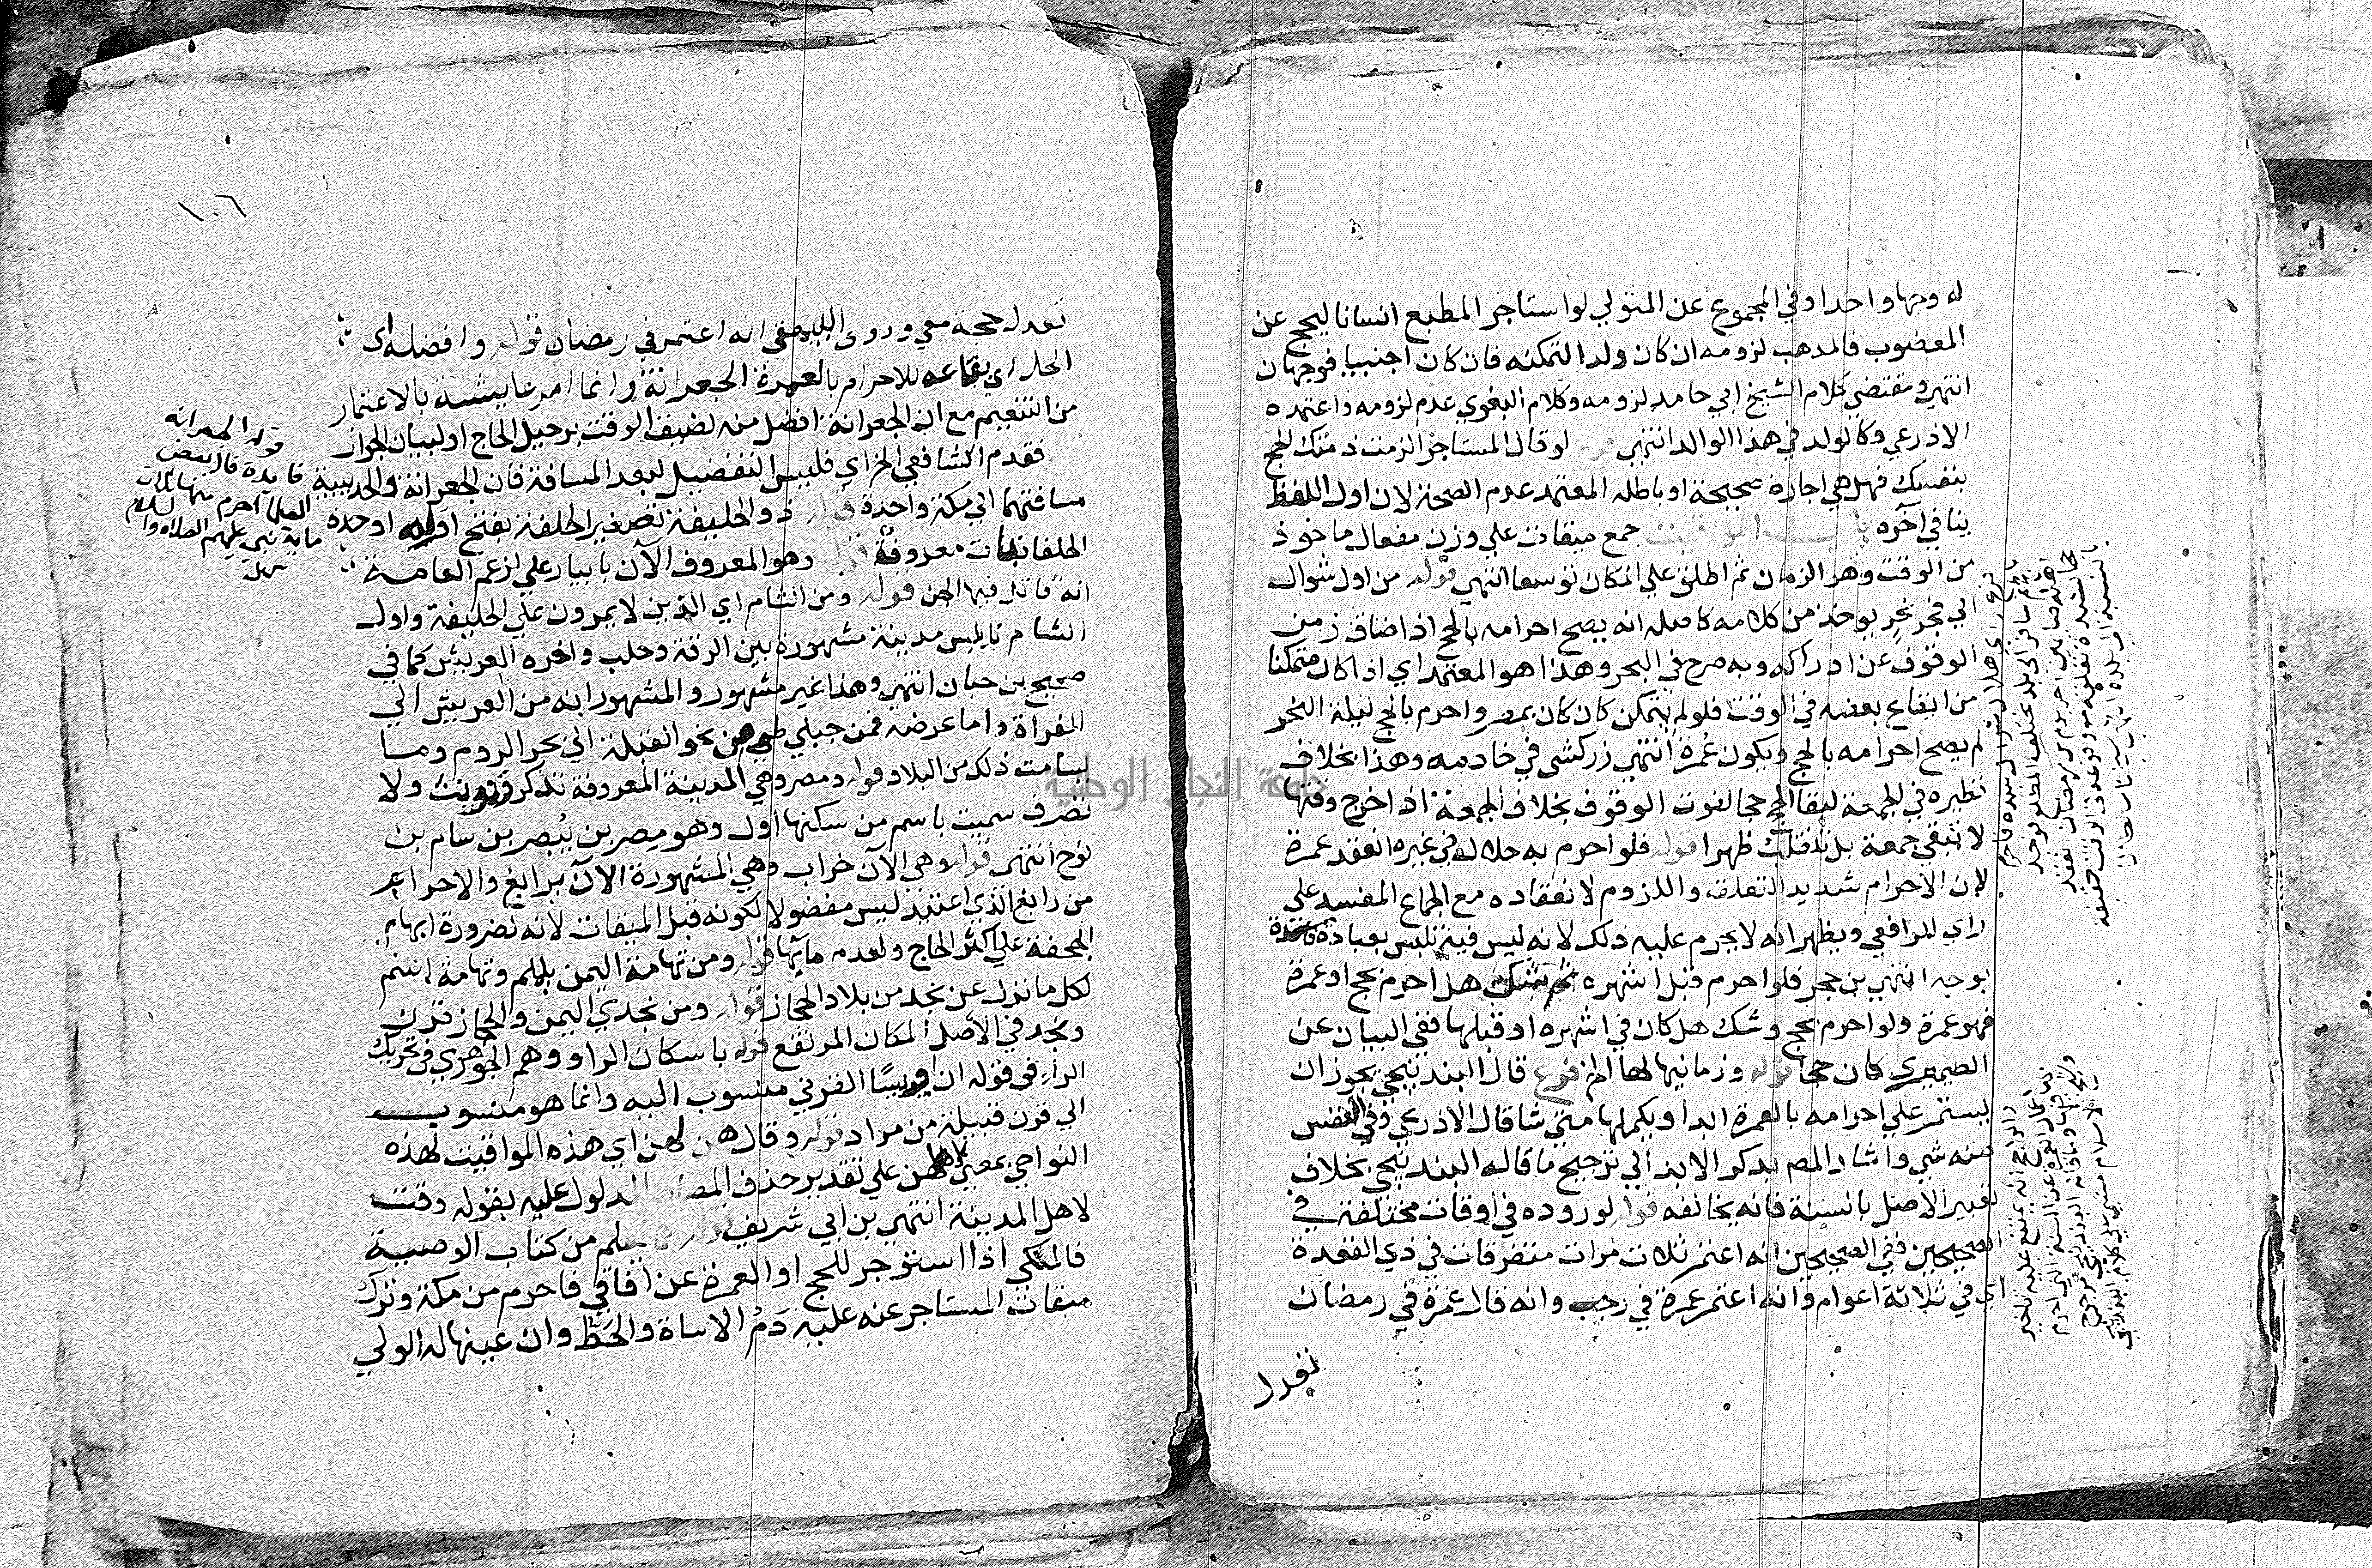 له وجها واحدا وفي المجموع عن المتولي لو استاجر المطيع انسانا ليحج عن
المعضوب فالمذهب لزومه ان كان ولدا لتمكنه فان كان اجنبيا فوجهان
انتهي ومقتضي كلام الشيخ ابي حامد لزومه وكلام البغوي عدم لزومه واعتمده
الاذرعي وكالولد في هذا الوالد انتهي لو قال المستاجر الزمت ذمتك لحج
بنفسك فهل هي اجارة صحيحة او باطله المعتمد عدم الصحة لان اول اللفظ
ينافي آخره باب المواقيت جمع ميقات علي وزن مفعال ماخوذ
من الوقت وهو الزمان ثم اطلق علي المكان توسعا انتهي قوله من اول شوال
الي فجر نحر يوخذ من كلامه كاصله انه يصح احرامه بالحج اذا ضاق زمن
الوقوف عن ادراكه وبه صرح في البحر وهذا هو المعتمد اي اذا كان متمكنا
من ايقاع بعضه في الوقت فلو لم يتمكن كان كان بمصر واحرم بالحج ليلة النحر
لم يصح احرامه بالحج ويكون عمرة انتهي زركشي في خادمه وهذا بخلاف
نظيره في الجمعة لبقا الحج حجا لفوت الوقوف بخلاف الجمعة اذا خرج وقتها
لا تبقي جمعة بل تنقلب ظهرا قوله فلو احرم به حلال في غيره انعقد عمرة
لان الاحرام شديد التعلق واللزوم لانعقاده مع الجماع المفسد علي
راي للرافعي ويظهر انه لا يحرم عليه ذلك لانه ليس فيه تلبس بعبادة فاسدة
بوجه انتهي بن حجر فلو احرم قبل اشهره ثم شك هل احرم بحج او عمرة
فهو عمرة ولو احرم بحج وشك هل كان في اشهره او قبلها ففي البيان عن
الصيمري كان حجا قوله وزمانيها لها الخ فرع قال البندنيجي يجوز ان
يستمر علي احرامه بالعمرة ابدا ويكملها متي شا قال الاذرعي وفي النفس
منه شي واشار المص بذكر الابد الي ترجيح ما قاله البندنيجي بخلاف
تعبير الاصل بالسنة فانه يخالفه قوله لوروده في اوقات مختلفة في
الصحيحين ففي الصحيحين انه اعتمر ثلاث مرات متفرقات في ذي القعدة
اي في ثلاثة اعوام وانه اعتمر عمرة في رجب وانه قال عمرة في رمضان
تعدل
١٠٦
تعدل حجة معي وروي البيهقي انه اعتمر في رمضان قوله وافضله اي
الحل اي بقاعه للاحرام بالعمرة الجعرانة وانما امر عايشة بالاعتمار
من التنعيم مع ان الجعرانة افضل منه لضيق الوقت برحيل الحاج او لبيان الجواز
فقدم الشافعي الخ اي فليس التفضيل لبعد المسافة فان الجعرانة والحديبية
مسافتهما الي مكة واحدة قوله ذو الحليفة تصغير الحلفة بفتح اوله او حده
الحلفا نبات معروف قوله وهو المعروف الآن بابيار علي لزعم العامة
انه قاتل فيها الجن قوله ومن الشام اي الذين لا يمرون علي الحليفة واول
الشام نابلس مدينة مشهورة بين الرقة وحلب واخره العريش كما في
صحيح بن حبان انتهي وهذا غير مشهور والمشهور انه من العريش الي
الفراة واما عرضه فمن جبلي طي من نحو القبلة الي بحر الروم وما
يسامت ذلك من البلاد قوله ومصر وهي المدينة المعروفة تذكر وتونث ولا
تصرف سميت باسم من سكنها اول وهو مصر بن بيصر بن سام بن
نوح انتهي قوله وهي الآن خراب وهي المشهورة الآن برابغ والاحرام
من رابغ الذي اعتيد ليس مفضولا لكونه قبل الميقات لانه لضرورة ابهام
الجحفة علي اكثر الحاج ولعدم مآيها قوله ومن تهامة اليمن يلملم وتهامة اسم
لكل ما نزل عن نجد من بلاد الحجاز قوله ومن نجدي اليمن والحجاز قرن
ونجد في الاصل المكان المرتفع قوله باسكان الرا ووهم الجوهري في تحريك
الراء في قوله ان اويسا القرني منسوب اليه وانما هو منسوب
الي قرن قبيلة من مراد قوله وقال هن لهن اي هذه المواقيت لهذه
النواحي بمعني اهلهن علي تقدير حذف المضاف المدلول عليه بقوله وقت
لاهل المدينة انتهي بن ابي شريف قوله مما يعلم من كتاب الوصية
فالمكي اذا استؤجر للحج او العمرة عن افاقي فاحرم من مكة وترك
ميقات المستاجر عنه عليه دم الاساة والحط وان عينها له الولي
قوله الجعرانه
فايدة قال بعض
العلما احرم منها ثلاث
ماية نبي عليهم الصلاة والسلام
جامعة النجاح الوطنية